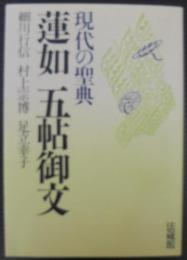 現代の聖典
蓮如 五帖御文
細川行信 村上宗博 足立幸子
法蔵館